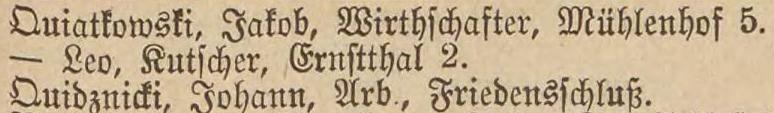 Quiatkowski, Jakob, Wirthschafter, Mühlenhof 5.
— Leo, Kutscher, Ernstthal 2.
Quidznicki, Johann, Arb., Friedensschluß.